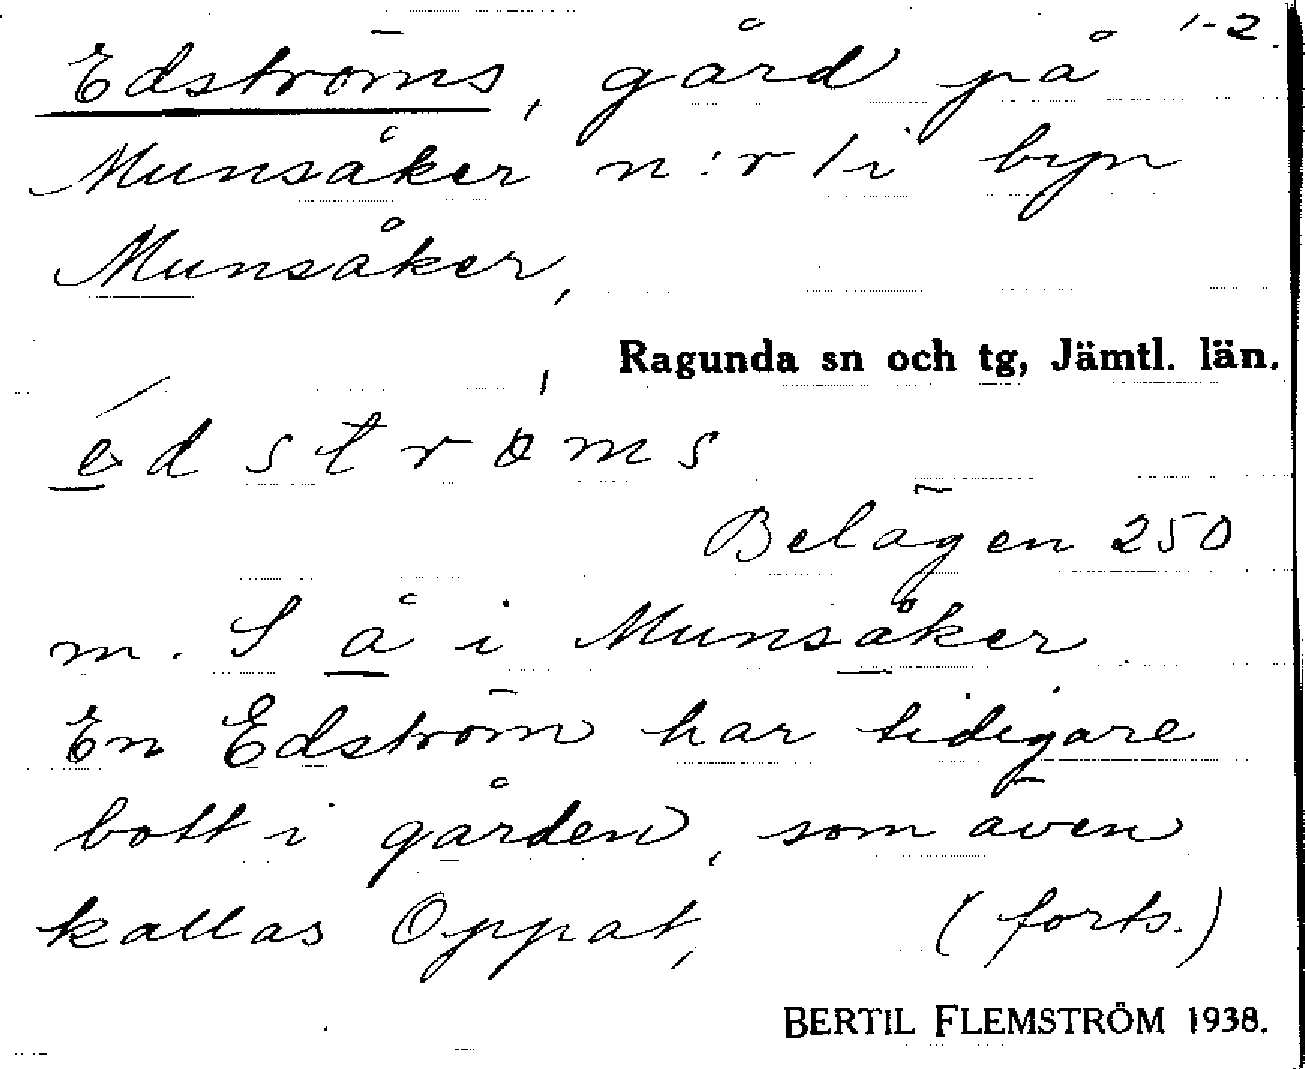 1-2.
Edströms, gård på
Munsåker n:r 1 i byn
Munsåker,
Ragunda sn och tg, Jämtl. län.
édströms
Belägen 250
m. S å i Munsåker
En Edström har tidigare
bott i gården, som även
kallas Oppat, (forts.)
BERTIL FLEMSTRÖM 1938.